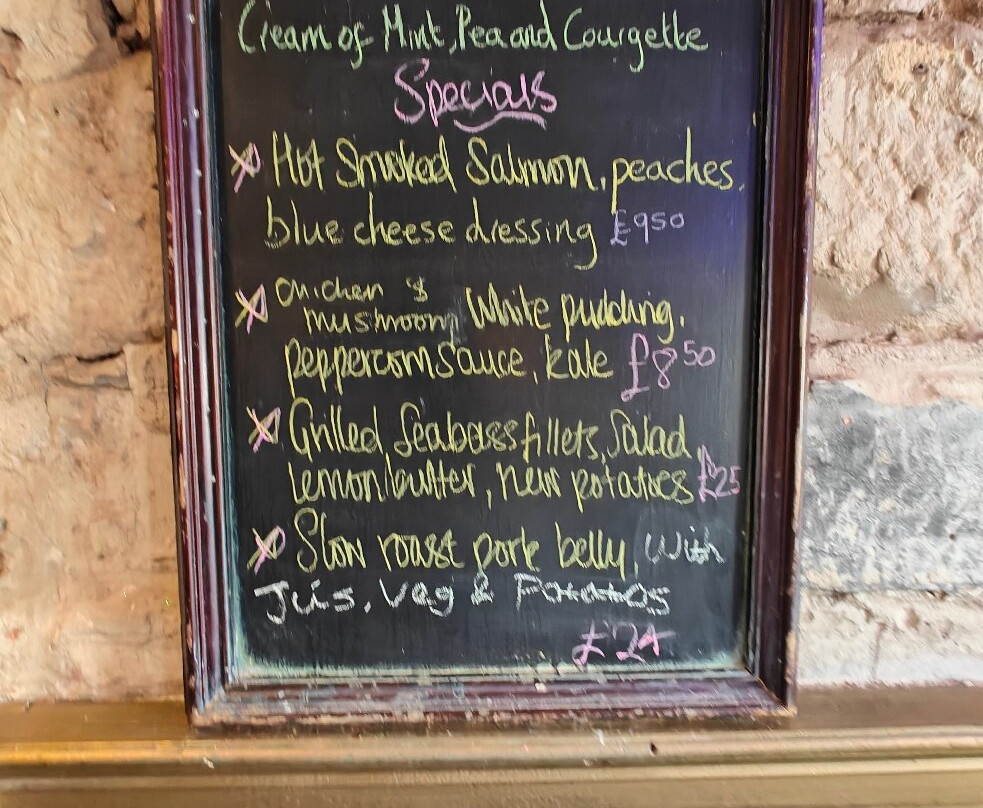 Cream of Mint, Pea and Courgette
Specials
Hot Smoked Salmon, peaches,
blue cheese dressing £950
Chicken &
mushroom White pudding,
peppercorn sauce, kale £8 50
Grilled Seabass fillets, Salad,
lemon butter, new potatoes £25
Slow roast pork belly, with
Juis, Veg & Potatos
£24